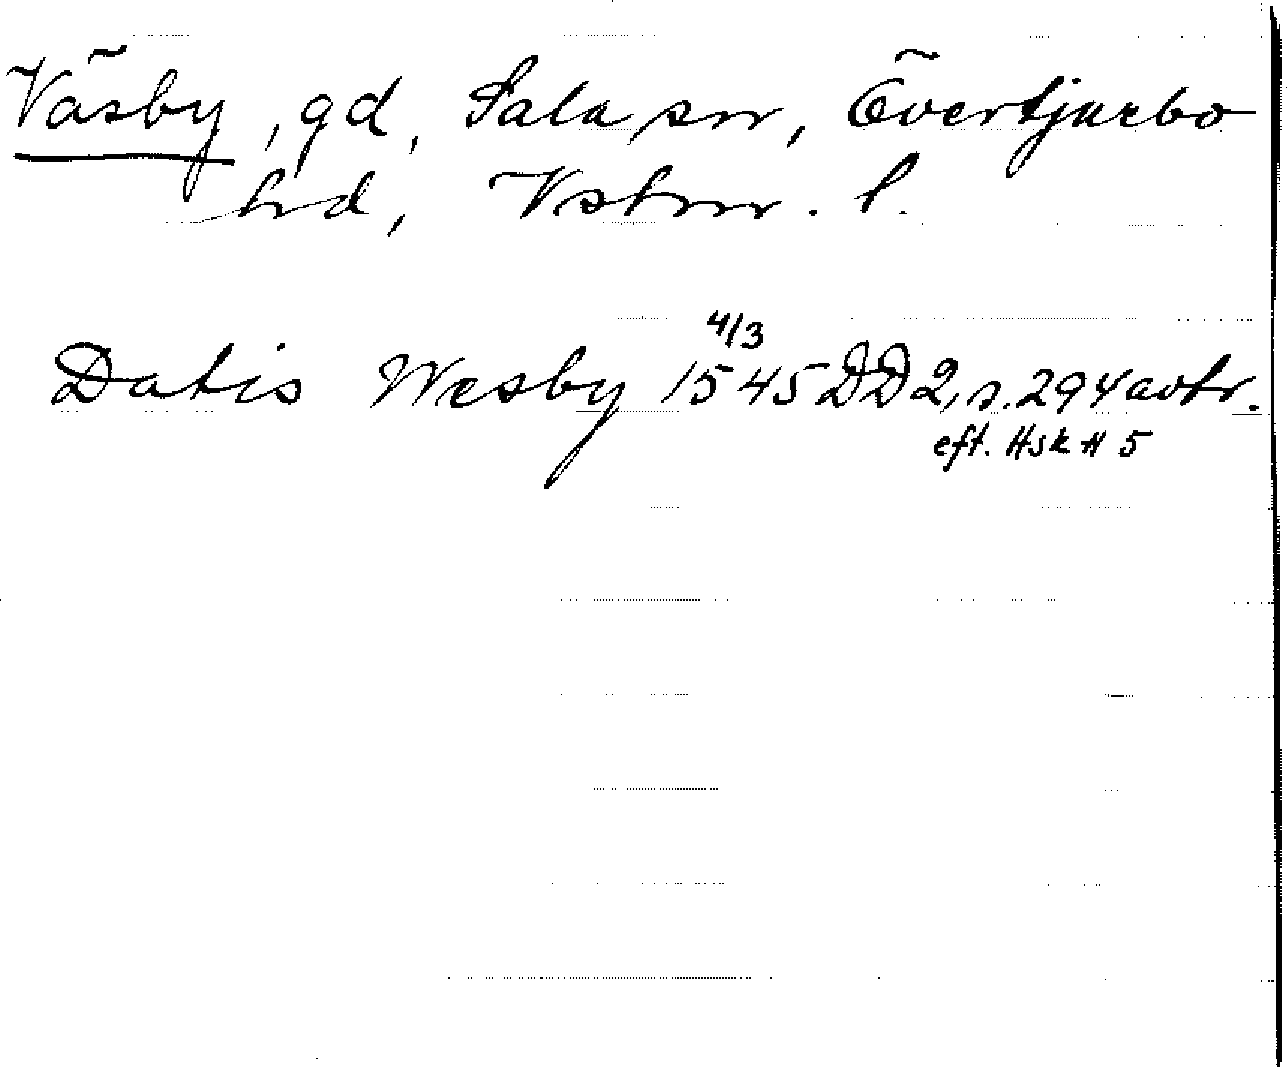 Väsby, gd, Sala sn, Övertjurbo
hd, Vstm. l.
Datis Wesby 4/3 1545 DD 2, s. 294 avtr.
eft. Hsk H 5